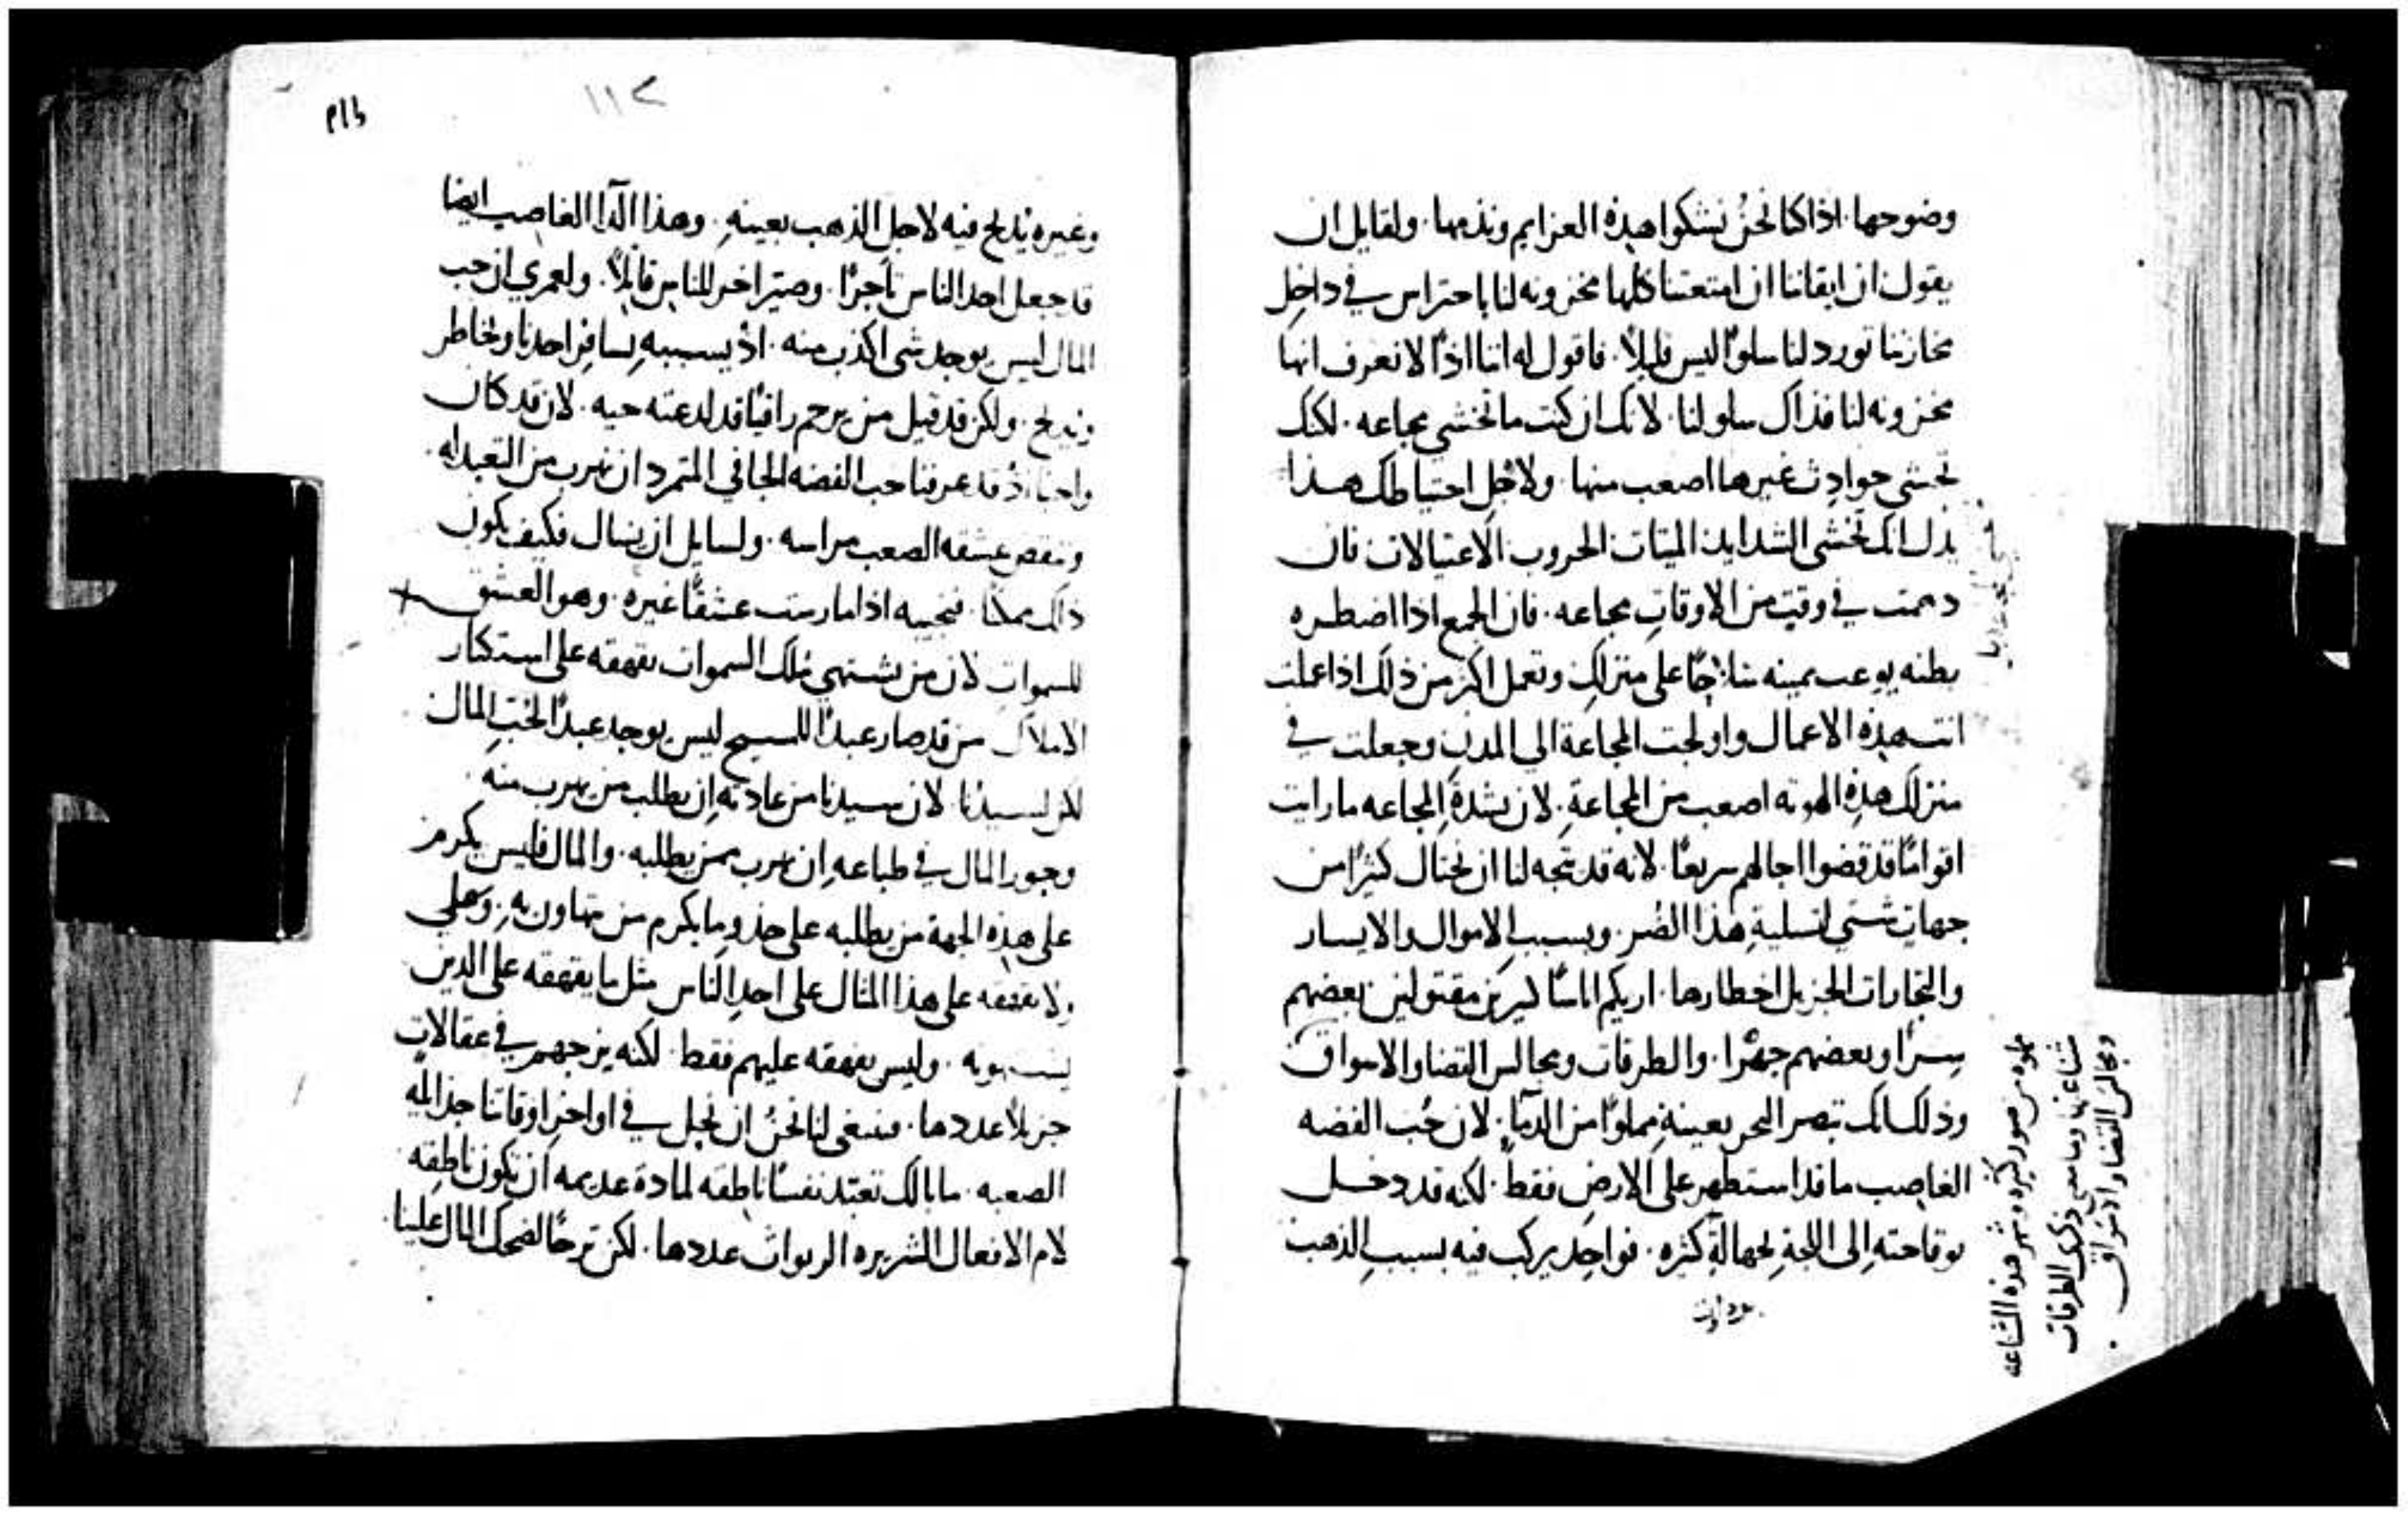 وضوحها. اذا كنا نحنُ نشكوا هذه العزايم ونذمها. ولقايل ان
يقول ان ايقاننا ان امتعتنا كلها مخزونه لنا باحتراس في داخِل
مخازننا تورد لنا سلوًا ليس قليلاً. فاقول له اننا اذًا لا نعرف انها
مخزونه لنا فذاك سلو لنا. لانك ان كنت ما تخشي مجاعه. لكنك
تخشي حوادث غيرها اصعب منها. ولاجُلِ احتياطك هذا
يدل انك تخشي الشدايد الميتات الحروب الاغتيالات فان
دهمت في وقتٍ من الاوقاتِ مجاعه. فان الجمع اذا اضطره
بطنه يوعب يمينه سلاحًا على منزلكِ وتعمل اكثر من ذلك اذا عملت
انت هذِه الاعمال واولجت المجاعة الي المدنِ وجعلت في
منزلك هذِه الهوته اصعب من المجاعةِ. لان شدةَ المجاعه ما رايت
اقوامًا قد قضوا اجالهم سريعًا. لانه قد يتجه لنا ان نحتال كثيرًا من
جهاتٍ شتي لتسليةِ هذا الضُر. وبسببِ الاموال والايسار
والتجارات الجزيل اخطارها. اريكم اناسًا كثيرين مقتولين بعضهم
سِرًا وبعضهم جهرًا. والطرقات ومجالس القضا والاسواق
وذلك انك تبصر البحر بعينهِ مملوًا من الدمآ. لان حُب الفضه
الغاصِب ما قد استظهر على الارضِ فقط. لكنه قد دخل
بوقاحتهِ الى اللجةِ بجهالةٍ كثيره. فواحِد يركب فيه بسببِ الذهب
مملوه من صور كثيره وشهر هذه الشناعه
شناعتها وما معنى ذكرى الطرقات
ومجالس القضا والاسواق.
١١٢
وغيره يُذبح فيه لاجلِ الذهب بعينهِ. وهذا الدآ الغاصِب ايضا
قد جعل احد الناس تاجرًا. وصيّر اخر للناسِ قاتِلاً. ولعمري ان حب
المال ليس يوجد شي اكذب منه. اذ بسببهِ يسافِر احدنا ويخاطر
ويذبح. ولكن قد قيل من يرحم راقيًا قد لدغته حيه. لان قد كان
واجبًا اذ قد عرفنا حب الفضه الجافي المتمرد ان نهرب من التعبد له.
وننقض عشقه الصعب مراسه. ولسايل ان يسال فكيف يكون
ذلك ممكنًا. فنجيبه اذا مارست عشقًا غيره. وهو العشق
للسمواتِ لان من يشتهي مُلك السموات يقهقه على استكثار
الاملاك من قد صار عبدًا للمسيح ليس يوجد عبدًا لحُبِ المال
لكن لسيدنا. لان سيدنا من عادته ان يطلب من يهرب منه.
وجور المال في طباعهِ ان يهرب ممن يطلبه. والمال فليس يكرم من
على هذِه الجهة من يطلبه على حذو ما يكرم من يتهاون به. وعلي
ولا يقهقه على هذا المثال على احدِ الناس مثل ما يقهقه على الدين
يشتهونه. وليس يقهقه عليهم فقط. لكنه يزجهم في عقالاتٍ
جزيلاً عددها. فينبغي لنا نحنُ ان نحل في اواخر اوقاتنا حبالهِ
الصعبه. ما بالك تعتبد نفسًا ناطقه لمادة عديمه ان تكون ناطِقه
لامِ الافعال الشريره الربوات عددها. لكن ترحًا لضحك المال علينا